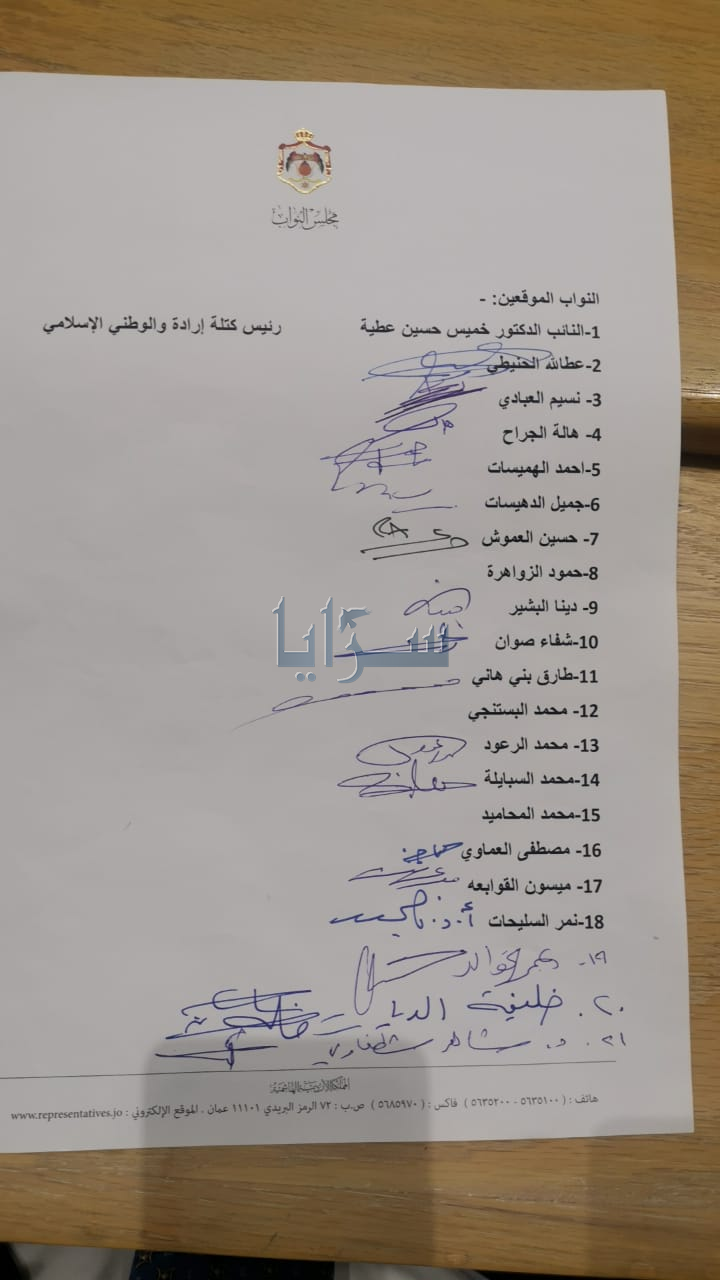 مجلس النواب
النواب الموقعين: -
1-النائب الدكتور خميس حسين عطية رئيس كتلة إرادة والوطني الإسلامي
2-عطالله الحنيطي
3- نسيم العبادي
4- هالة الجراح
5-احمد الهميسات
6-جميل الدهيسات
7- حسين العموش
8-حمود الزواهرة
9- دينا البشير
10-شفاء صوان
سرايا
11-طارق بني هاني
12- محمد البستنجي
13- محمد الرعود
14-محمد السبايلة
15-محمد المحاميد
16- مصطفى العماوي
17- ميسون القوابعه
18-نمر السليحات
١٩-
٢٠. خليفة الديات
٢١. د. شاهر شطناوي
المملكة الأردنية الهاشمية
هاتف : ( ٥٦٣٥١٠٠ - ٥٦٣٥٢٠٠ ) فاكس : ( ٥٦٨٥٩٧٠ ) ص.ب : ٧٢ الرمز البريدي ١١١٠١ عمان . الموقع الإلكتروني : www.representatives.jo